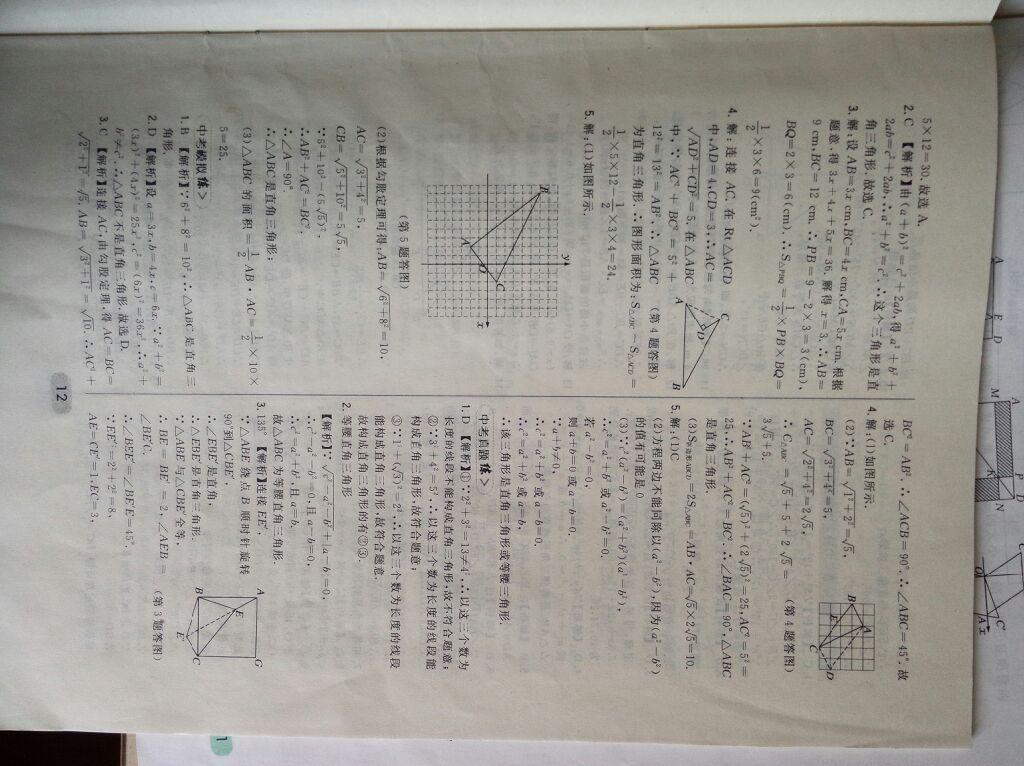 5×12=30,故选 A.
2. C 【解析】由(a+b)²=c²+2ab,得 a²+b²+
2ab=c²+2ab,∴a²+b²=c²,∴这个三角形是直
角三角形.故选 C.
3. 解:设 AB=3x cm,BC=4x cm,CA=5x cm.根据
题意,得 3x+4x+5x=36,解得 x=3.∴AB=
9 cm,BC=12 cm.∴PB=9-2×3=3(cm),
BQ=2×3=6(cm).∴S△PBQ=1/2×PB×BQ=
1/2×3×6=9(cm²).
4. 解:连接 AC,在 Rt△ACD
中,AD=4,CD=3,∴AC=
√AD²+CD²=5.在△ABC
中,∵AC²+BC²=5²+
12²=13²=AB²,∴△ABC
(第 4 题答图)
为直角三角形,∴图形面积为:S△ABC-S△ACD=
1/2×5×12-1/2×3×4=24.
5. 解:(1)如图所示.
(第 5 题答图)
(2)根据勾股定理可得:AB=√6²+8²=10,
AC=√3²+4²=5,
CB=√5²+10²=5√5,
∵5²+10²=(5√5)²,
∴AB²+AC²=BC²,
∴∠A=90°,
∴△ABC 是直角三角形;
(3)△ABC 的面积=1/2AB·AC=1/2×10×
5=25.
中考模拟练>
1. B 【解析】∵6²+8²=10²,∴△ABC 是直角三
角形.
2. D 【解析】设 a=3x,b=4x,c=6x,∵a²+b²=
(3x)²+(4x)²=25x²,c²=(6x)²=36x²,∴a²+
b²≠c²,∴△ABC 不是直角三角形.故选 D.
3. C 【解析】连接 AC,由勾股定理,得 AC=BC=
√2²+1²=√5,AB=√3²+1²=√10.∴AC²+
BC²=AB²,∴∠ACB=90°.∴∠ABC=45°.故
选 C.
4. 解:(1)如图所示.
(2)∵AB=√1²+2²=√5,
BC=√3²+4²=5,
AC=√2²+4²=2√5,
∴C△ABC=√5+5+2√5=
(第 4 题答图)
3√5+5.
∵AB²+AC²=(√5)²+(2√5)²=25,AC²=5²=
25,∴AB²+AC²=BC²,∴∠BAC=90°,△ABC
是直角三角形.
(3)S四边形ABCD=2S△ABC=AB·AC=√5×2√5=10.
5. 解:(1)C
(2)方程两边不能同除以(a²-b²),因为(a²-b²)
的值有可能是 0
(3)∵c²(a²-b²)=(a²+b²)(a²-b²),
∴c²=a²+b² 或 a²-b²=0.
若 a²-b²=0,
则 a+b=0 或 a-b=0.
∵a+b≠0,
∴c²=a²+b² 或 a-b=0.
∴c²=a²+b² 或 a=b,
∴该三角形是直角三角形或等腰三角形.
中考真题练>
1. D 【解析】①∵2²+3²=13≠4²,∴以这三个数为
长度的线段不能构成直角三角形,故不符合题意;
②∵3²+4²=5²,∴以这三个数为长度的线段能
构成直角三角形,故符合题意;
③∵1²+(√3)²=2²,∴以这三个数为长度的线段
能构成直角三角形,故符合题意.
故构成直角三角形的有②③.
2. 等腰直角三角形
【解析】∵√c²-a²-b²+|a-b|=0,
∴c²-a²-b²=0,且 a-b=0,
∴c²=a²+b²,且 a=b,
故△ABC 为等腰直角三角形.
3. 135° 【解析】连接 EE′,
∵△ABE 绕点 B 顺时针旋转
90°到△CBE′,
∴∠EBE′是直角,
∴△EBE′是直角三角形.
∵△ABE 与△CBE′全等,
∴BE=BE′=2,∠AEB=
(第 3 题答图)
∠BE′C,
∴∠BEE′=∠BE′E=45°,
∵EE′²=2²+2²=8,
AE=CE′=1,EC=3,
12